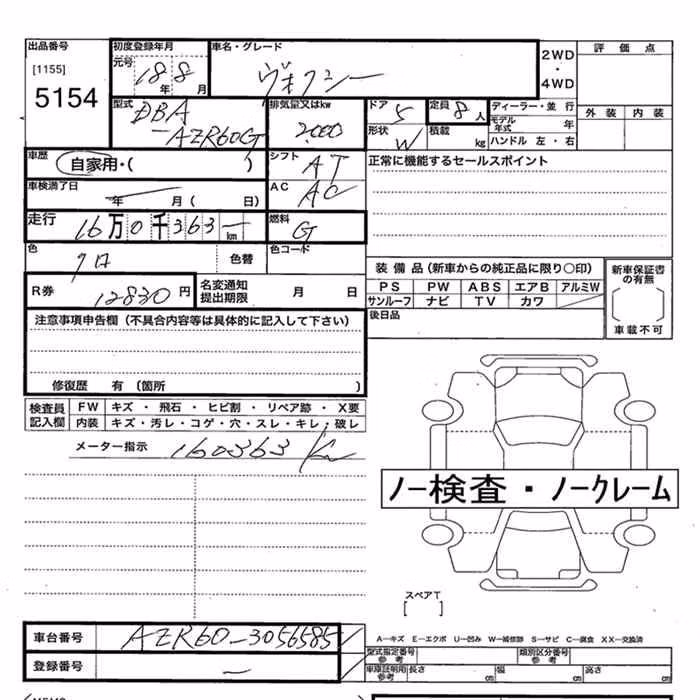 出品番号
[1155]
5154
初度登録年月
元号
18年 8月
車名・グレード
ヴォクシー
2WD
・
4WD
評価点
外装 内装
型式
DBA
-AZR60G
排気量又はkw
2000
ドア
5
定員 8人
形状
W
積載 kg
ディーラー・並行
モデル年式 年
ハンドル 左・右
車歴
自家用・( )
シフト
AT
正常に機能するセールスポイント
車検満了日
年 月 ( 日)
AC
AC
走行
16万0千363 km
燃料
G
色
クロ
色替
色コード
装備品(新車からの純正品に限り〇印)
PS PW ABS エアB アルミW
サンルーフ ナビ TV カワ
新車保証書の有無
車載不可
後日品
R券
12830円
名変通知
提出期限
月 日
注意事項申告欄(不具合内容等は具体的に記入して下さい)
修復歴 有(箇所 )
検査員
記入欄
FW キズ・飛石・ヒビ割・リペア跡・X要
内装 キズ・汚レ・コゲ・穴・スレ・キレ・破レ
メーター指示
160363 Km
ノー検査・ノークレーム
スペアT
[ ]
車台番号
AZR60-3056585
登録番号
—
A—キズ E—エクボ U—凹み W—補修跡 S—サビ C—腐食 XX—交換済
型式指定番号
参考
類別区分番号
参考
車庫証明用
参考
長さ cm
幅 cm
高さ cm